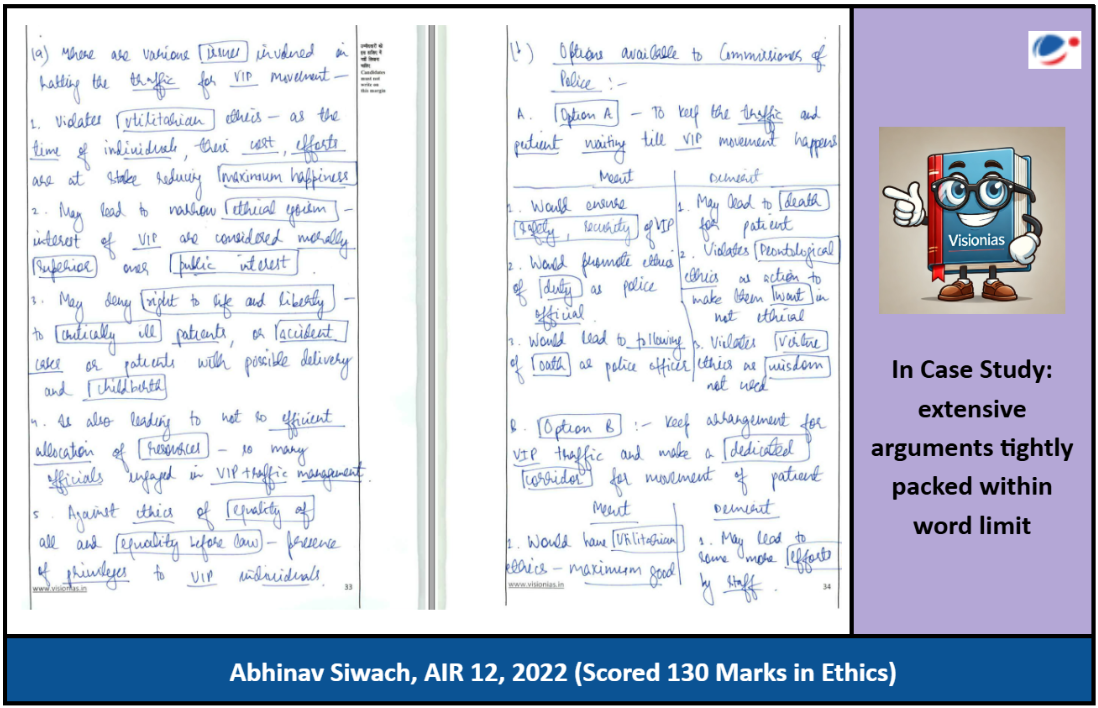 (a) There are various issues involved in
halting the traffic for VIP movement —
1. Violates utilitarian ethics – as the
time of individuals, their cost, efforts
are at stake reducing maximum happiness
2. May lead to narrow ethical egoism –
interest of VIP are considered morally
superior over public interest.
3. May deny right to life and liberty –
to critically ill patients, or accident
cases or patients with possible delivery
and childbirth
4. Is also leading to not so efficient
allocation of resources – so many
officials engaged in VIP traffic management.
5. Against ethics of equality of
all and equality before law – presence
of privileges to VIP individuals.
www.visionias.in
33
उम्मीदवारों को
इस हाशिए में
नहीं लिखना
चाहिए
Candidates
must not
write on
this margin
(b) Options available to Commissioner of
Police :-
A. Option A – To keep the traffic and
patient waiting till VIP movement happens
Merit
1. Would ensure
safety, security of VIP
2. Would promote ethics
of duty as police
official.
3. Would lead to following
of oath as police officer
Demerit
1. May lead to death
for patient
2. Violates Deontological
ethics as action to
make them wait is
not ethical
3. Violates virtue
ethics as wisdom
not used
B. Option B :- Keep arrangement for
VIP traffic and make a dedicated
corridor for movement of patient
Merit
1. Would have Utilitarian
ethics – maximum good
Demerit
1. May lead to
some more efforts
by staff.
www.visionias.in
34
Visionias
In Case Study:
extensive
arguments tightly
packed within
word limit
Abhinav Siwach, AIR 12, 2022 (Scored 130 Marks in Ethics)